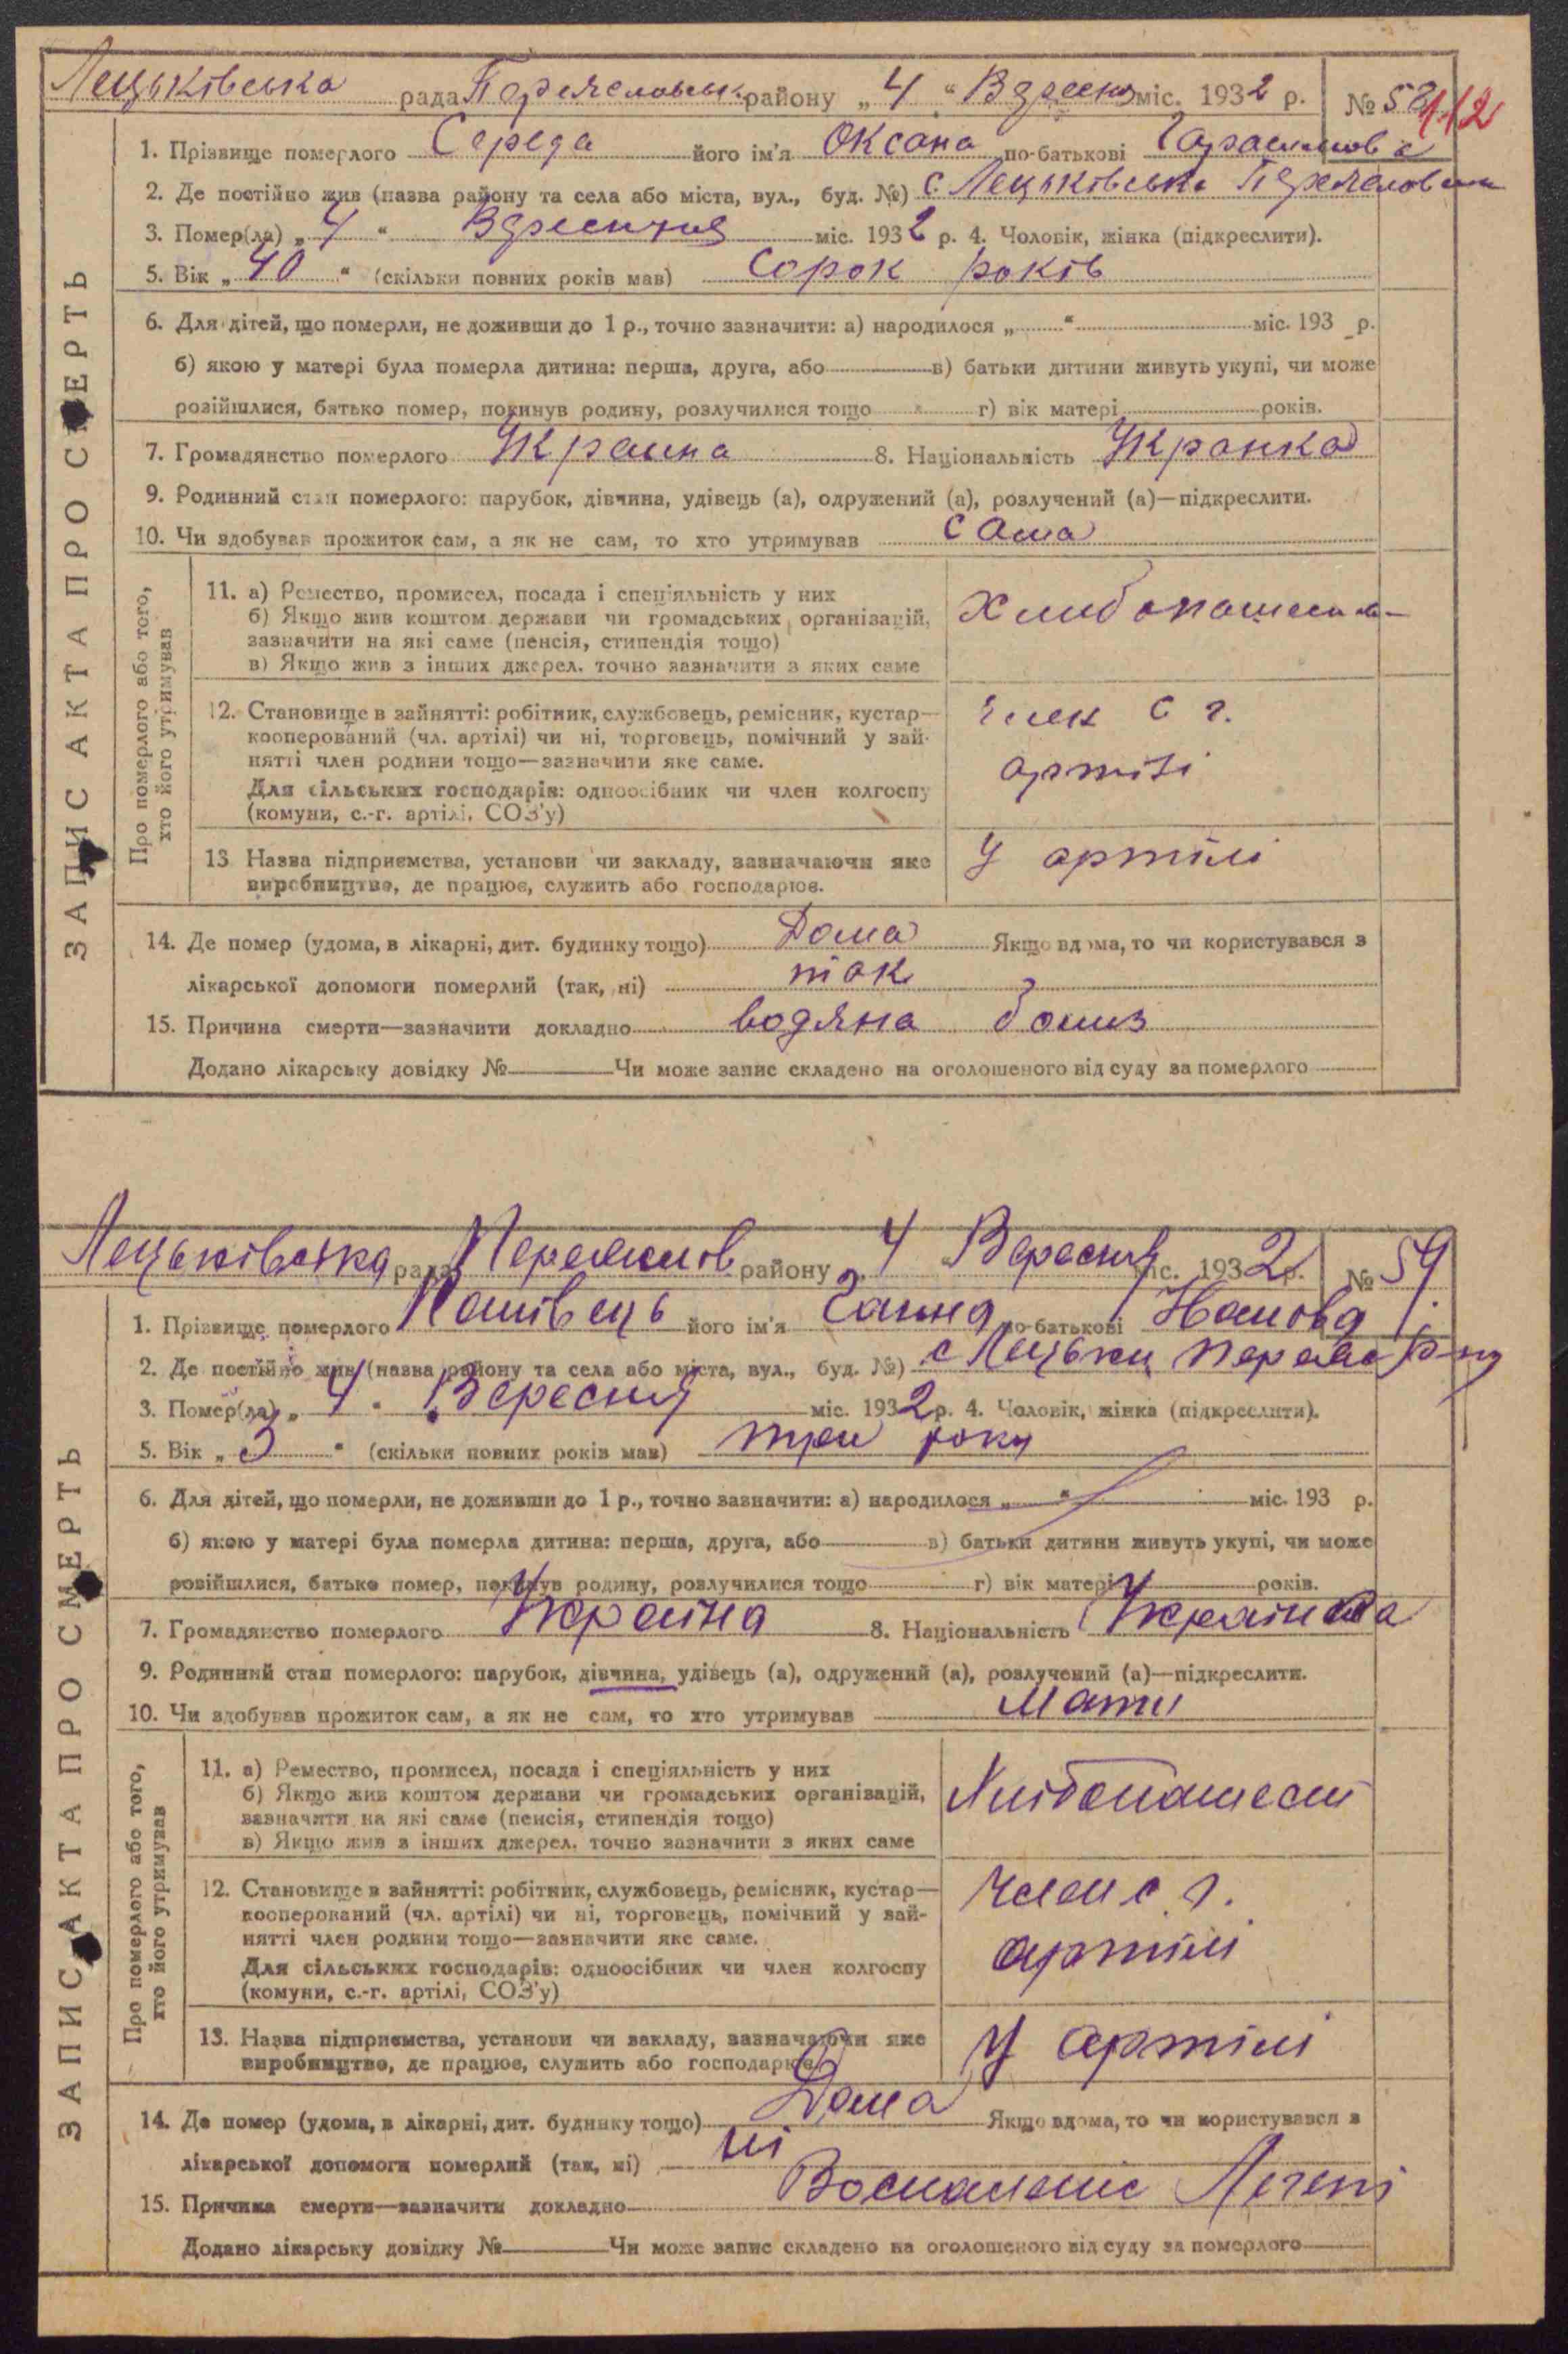 Лецьківська рада Переяславськ району „ 4 “ Вересня міс. 1932 р. № 58
112
1. Прізвище померлого Середа його ім'я Оксана по-батькові Гарасимов а
2. Де постійно жив (назва району та села або міста, вул., буд. №) с Лецьківська
3. Помер(ла) „ 4 “ міс. 1932 р. 4. Чоловік, жінка (підкреслити).
5. Вік „ 40 “ (скільки повних років мав) Сорок років
6. Для дітей, що померли, не доживши до 1 р., точно зазначити: а) народилося „ “ міс. 193 р.
б) якою у матері була померла дитина: перша, друга, або в) батьки дитини живуть укупі, чи може
розійшлися, батько помер, покинув родину, розлучилися тощо г) вік матері років.
7. Громадянство померлого Украина 8. Національність Укранка
9. Родинний стан померлого: парубок, дівчина, удівець (а), одружений (а), розлучений (а)—підкреслити.
10. Чи здобував прожиток сам, а як не сам, то хто утримував сама
ЗАПИС АКТА ПРО СМЕРТЬ
Про померлого або того,
хто його утримував
11. а) Ремество, промисел, посада і спеціяльність у них
б) Якщо жив коштом держави чи громадських організацій,
зазначити на які саме (пенсія, стипендія тощо)
в) Якщо жив з інших джерел, точно зазначити з яких саме
12. Становище в зайнятті: робітник, службовець, ремісник, кустар—
кооперований (чл. артілі) чи ні, торговець, помічний у зай-
нятті член родини тощо—зазначити яке саме.
Для сільських господарів: одноосібник чи член колгоспу
(комуни, с.-г. артілі, СОЗ'у)
член с г.
артілі
13 Назва підприємства, установи чи закладу, зазначаючи яке
виробництво, де працює, служить або господарює.
У артілі
14. Де помер (удома, в лікарні, дит. будинку тощо) Дома Якщо вдома, то чи користувався з
лікарської допомоги померлий (так, ні) так
15. Причина смерти—зазначити докладно водяна
Додано лікарську довідку № Чи може запис складено на оголошеного від суду за померлого
Лецьківська рада Переяслов району „ 4 “ Вересня міс. 1932 р. № 59
1. Прізвище померлого його ім'я Ганна по-батькові
2. Де постійно жив (назва району та села або міста, вул., буд. №) с Лецьки Переяс р-ну
3. Помер(ла) „ 4 “ Вересня міс. 1932 р. 4. Чоловік, жінка (підкреслити).
5. Вік „ 3 “ (скільки повних років мав) три року
6. Для дітей, що померли, не доживши до 1 р., точно зазначити: а) народилося „ “ міс. 193 р.
б) якою у матері була померла дитина: перша, друга, або в) батьки дитини живуть укупі, чи може
розійшлися, батько помер, покинув родину, розлучилися тощо г) вік матері років.
7. Громадянство померлого Україна 8. Національність Українка
9. Родинний стан померлого: парубок, дівчина, удівець (а), одружений (а), розлучений (а)—підкреслити.
10. Чи здобував прожиток сам, а як не сам, то хто утримував Мати
ЗАПИС АКТА ПРО СМЕРТЬ
Про померлого або того,
хто його утримував
11. а) Ремество, промисел, посада і спеціяльність у них
б) Якщо жив коштом держави чи громадських організацій,
зазначити на які саме (пенсія, стипендія тощо)
в) Якщо жив з інших джерел, точно зазначити з яких саме
12. Становище в зайнятті: робітник, службовець, ремісник, кустар—
кооперований (чл. артілі) чи ні, торговець, помічний у зай-
нятті член родини тощо—зазначити яке саме.
Для сільських господарів: одноосібник чи член колгоспу
(комуни, с.-г. артілі, СОЗ'у)
член с г.
артілі
13. Назва підприємства, установи чи закладу, зазначаючи яке
виробництво, де працює, служить або господарює.
У артілі
14. Де помер (удома, в лікарні, дит. будинку тощо) Дома Якщо вдома, то чи користувався з
лікарської допомоги померлий (так, ні) ні
15. Причина смерти—зазначити докладно Воспаленіє Легень
Додано лікарську довідку № Чи може запис складено на оголошеного від суду за померлого